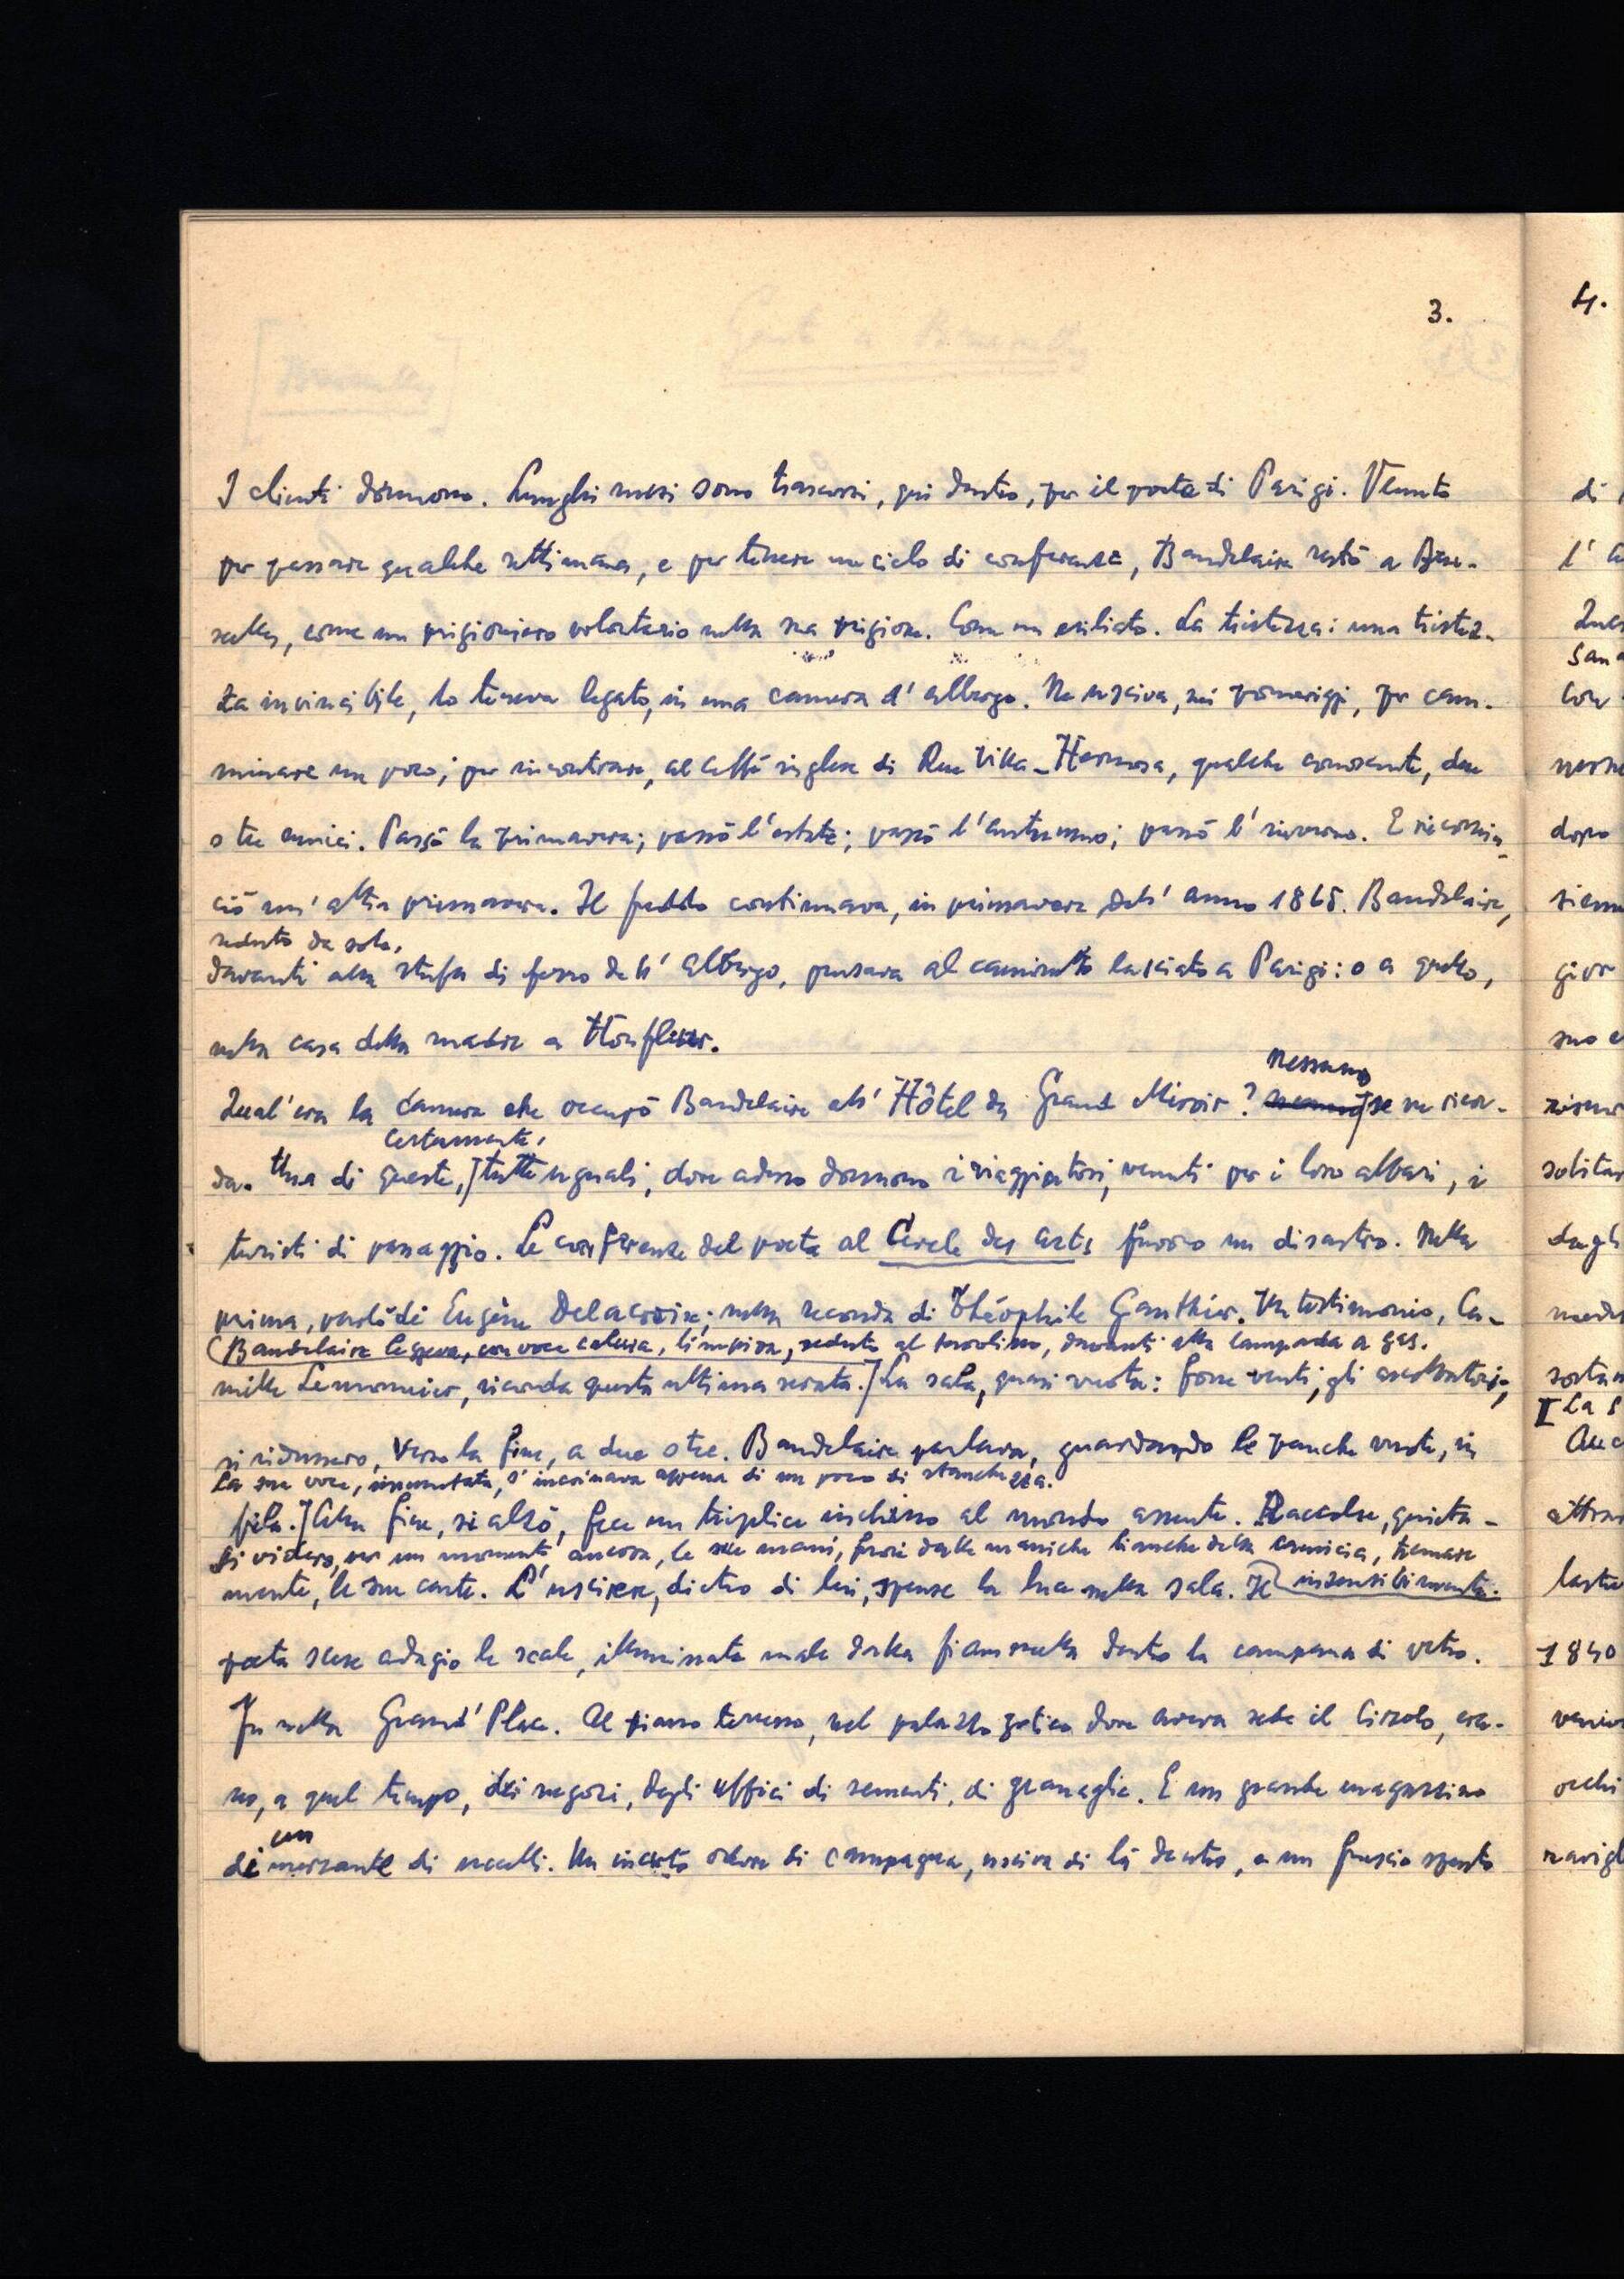 3.
I clienti dormono. Lunghi mesi sono trascorsi, qui dentro, per il poeta di Parigi. Venuto
per passare qualche settimana, e per tenere un ciclo di conferenze, Baudelaire restò a Bru-
xelles, come un prigioniero volontario nella sua prigione. Come un esiliato. La tristezza: una tristez-
za invincibile, lo teneva legato, in una camera d'albergo. Ne usciva, nei pomeriggi, per cam-
minare un poco; per incontrare, al caffè inglese di Rue Villa-Hermosa, qualche conoscente, due
o tre amici. Passò la primavera; passò l'estate; passò l'autunno; passò l'inverno. E ricomin-
ciò un'altra primavera. Il freddo continuava, in primavera dell'anno 1865. Baudelaire,
seduto da solo,
davanti alla stufa di ferro dell'albergo, pensava al caminetto lasciato a Parigi: o a quello,
nella casa della madre a Honfleur.
nessuno
Qual'era la camera che occupò Baudelaire all'Hôtel du Grand Miroir? se ne ricor-
certamente,
da. Una di queste,] tutte uguali, dove adesso dormono i viaggiatori, venuti per i loro affari, i
turisti di passaggio. Le conferenze del poeta al Cercle des Arts furono un disastro. Nella
prima, parlò di Eugène Delacroix; nella seconda di Théophile Gauthier. Un testimonio, Ca-
(Baudelaire leggeva, con voce calma, limpida, seduto al tavolino, davanti alla lampada a gas.
mille Lemonnier, ricorda questa ultima serata.] La sala, quasi vuota: forse venti, gli ascoltatori,
si ridussero, verso la fine, a due o tre. Baudelaire parlava, guardando le panche vuote, in
La sua voce, immutata, s'incrinava appena di un poco di stanchezza.
fila.] Alla fine, si alzò, fece un triplice inchino al mondo assente. Raccolse, quieta-
Si videro, per un momento ancora, le sue mani, fuori dalle maniche bianche della camicia, tremare
mente, le sue carte. L'usciere, dietro di lui, spense la luce nella sala. Il insensibilmente.
poeta scese adagio le scale, illuminate male dalla fiammella dentro la campana di vetro.
Fu nella Grand'Place. Al piano terreno, nel palazzo gotico dove aveva sede il Circolo, era-
no, a quel tempo, dei negozi, degli uffici di sementi, di granaglie. E un grande magazzino
un
di mercante di uccelli. Un incerto odore di campagna, usciva di là dentro, e un fruscio spento
4.